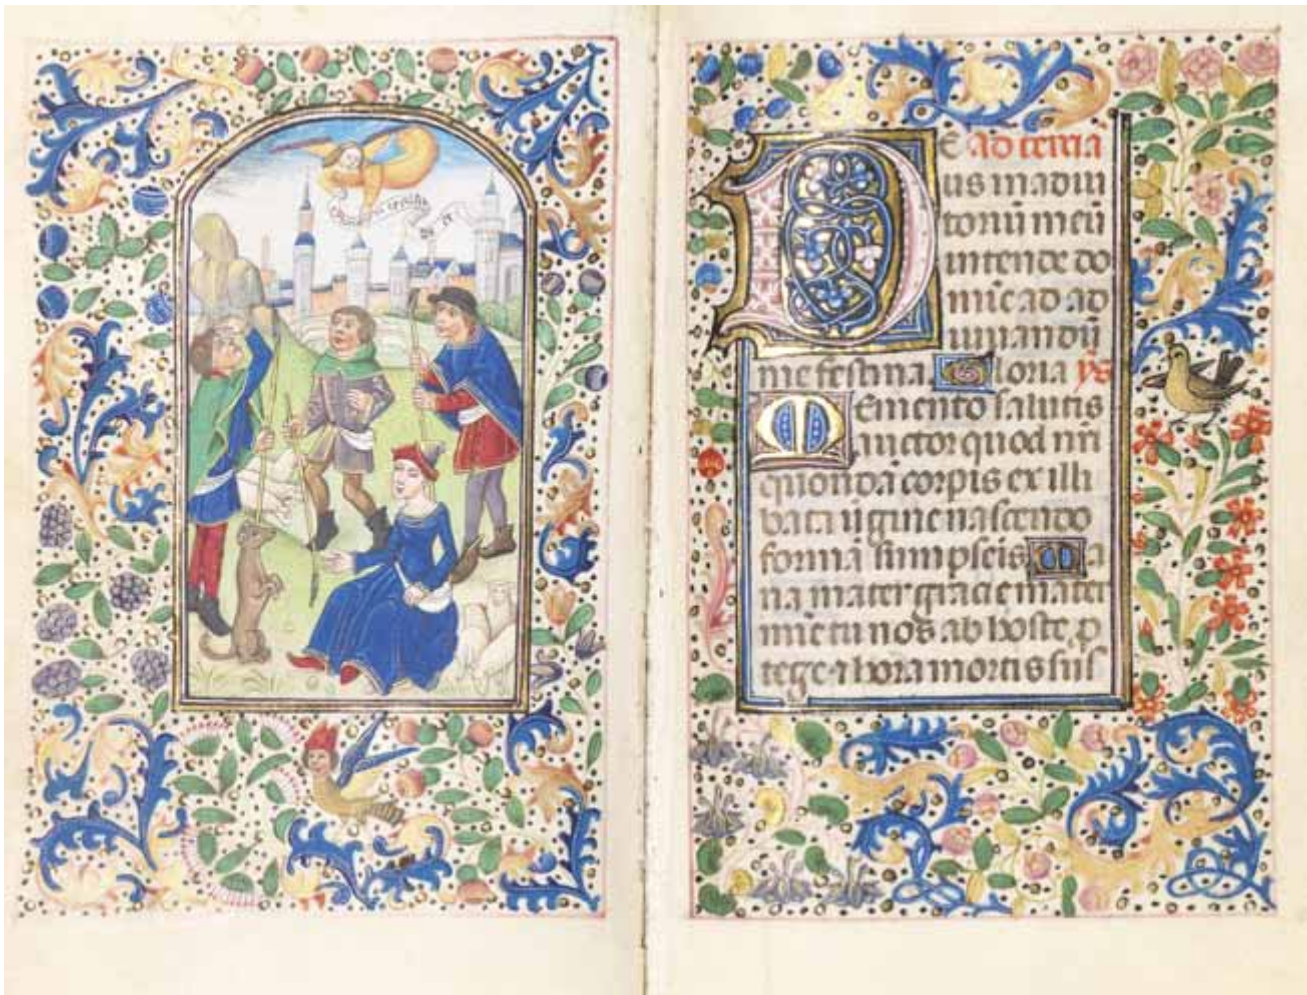 DE ad terciā
us in adiu
toriū meū
intende do
mīe ad ad
iuuandū
me festina. Gloria ỹs
Memento salutis
auctor quod nr̄i
quondā corpīs ex illi
bata ūgine nascendo
formā sumpseris Ma
ria mater gracie mater
mīe tu nos ab hoste p
tege & hora mortis sus